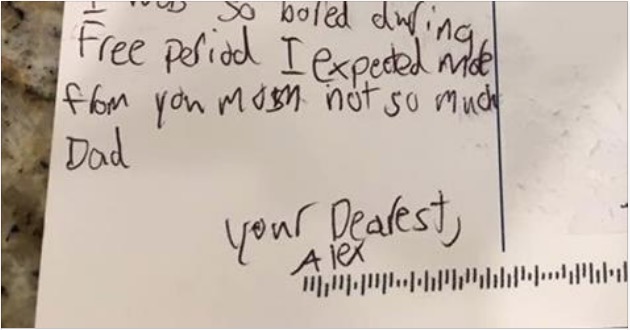 I was so bored during
Free period I expected more
from you mom not so much
Dad
your Dearest,
Alex